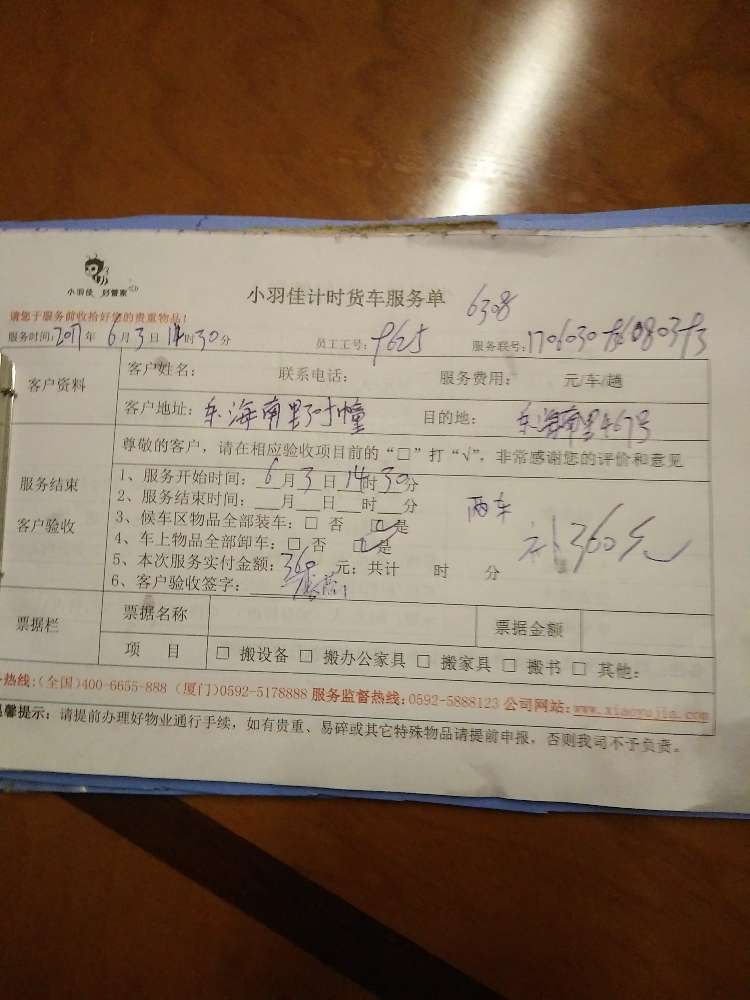 小羽佳 好管家
小羽佳计时货车服务单 6308
请您于服务前收拾好您的贵重物品！
服务时间：2017年6月3日14时30分 员工工号：9625 服务联号：
客户资料
客户姓名： 联系电话： 服务费用： 元/车/趟
客户地址：东海南里 目的地：东海南里467号
尊敬的客户，请在相应验收项目前的“□”打“√”，非常感谢您的评价和意见
服务结束
客户验收
1、服务开始时间：6月3日14时30分
2、服务结束时间：___月___日___时___分
两车
3、候车区物品全部装车：□ 否 □ 是
4、车上物品全部卸车：□ 否 □ 是
360元
5、本次服务实付金额：360元；共计 时 分
6、客户验收签字：
票据栏
票据名称 票据金额
项 目 □ 搬设备 □ 搬办公家具 □ 搬家具 □ 搬书 □ 其他：
热线：(全国)400-6655-888 (厦门)0592-5178888 服务监督热线：0592-5888123 公司网站：www.xiaoyujia.com
温馨提示：请提前办理好物业通行手续，如有贵重、易碎或其它特殊物品请提前申报，否则我司不予负责。